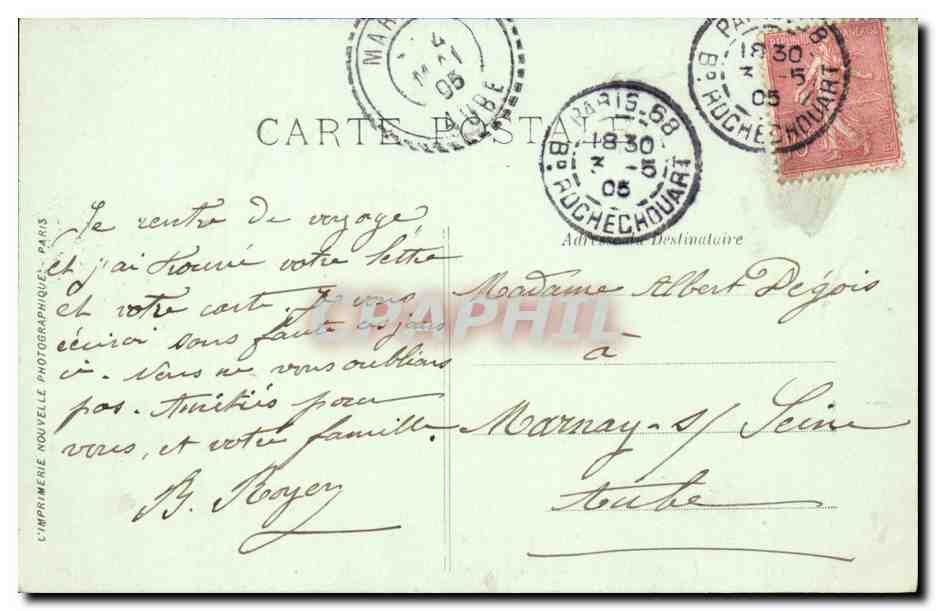 CARTE POSTALE
MAR
4
MAI
05
AUBE
PARIS-68
18 30
3 -5
05
Bd. ROCHECHOUART
PARIS-68
18 30
3 -5
05
Bd. ROCHECHOUART
Adresse du Destinataire
Je rentre de voyage
et j'ai trouvé votre lettre
et votre carte. Je vous
écrirai sans faute ces jours
ci. Nous ne vous oublions
pas. Amitiés pour
vous, et votre famille.
B. Royer
Madame Albert Dégois
à
Marnay-s/ Seine
Aube
L'IMPRIMERIE NOUVELLE PHOTOGRAPHIQUE - PARIS
CPAPHIL